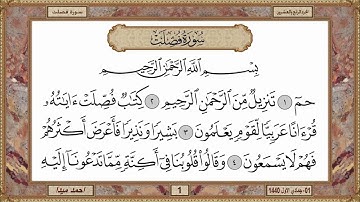 الجزء الرابع والعشرين
سورة فصلت
سُورَةُ فُصِّلَتْ
بِسْمِ اللَّهِ الرَّحْمَٰنِ الرَّحِيمِ
حمٓ ١ تَنزِيلٌ مِّنَ الرَّحْمَٰنِ الرَّحِيمِ ٢ كِتَٰبٌ فُصِّلَتْ ءَايَٰتُهُۥ
قُرْءَانًا عَرَبِيًّا لِّقَوْمٍ يَعْلَمُونَ ٣ بَشِيرًا وَنَذِيرًا فَأَعْرَضَ أَكْثَرُهُمْ
فَهُمْ لَا يَسْمَعُونَ ٤ وَقَالُوا۟ قُلُوبُنَا فِىٓ أَكِنَّةٍ مِّمَّا تَدْعُونَآ إِلَيْهِ
01- جمادى الأول 1440
1